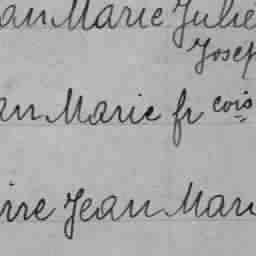 an Marie Julie
Josep
an Marie fr cois
rre Jean Mari